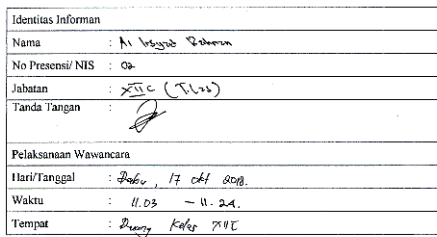 Identitas Informan
Nama : Al Irsyad
No Presensi/ NIS : 02
Jabatan : XII C
Tanda Tangan :
Pelaksanaan Wawancara
Hari/Tanggal : Rabu, 17 okt 2018.
Waktu : 11.03 – 11.24.
Tempat : Ruang Kelas XII C